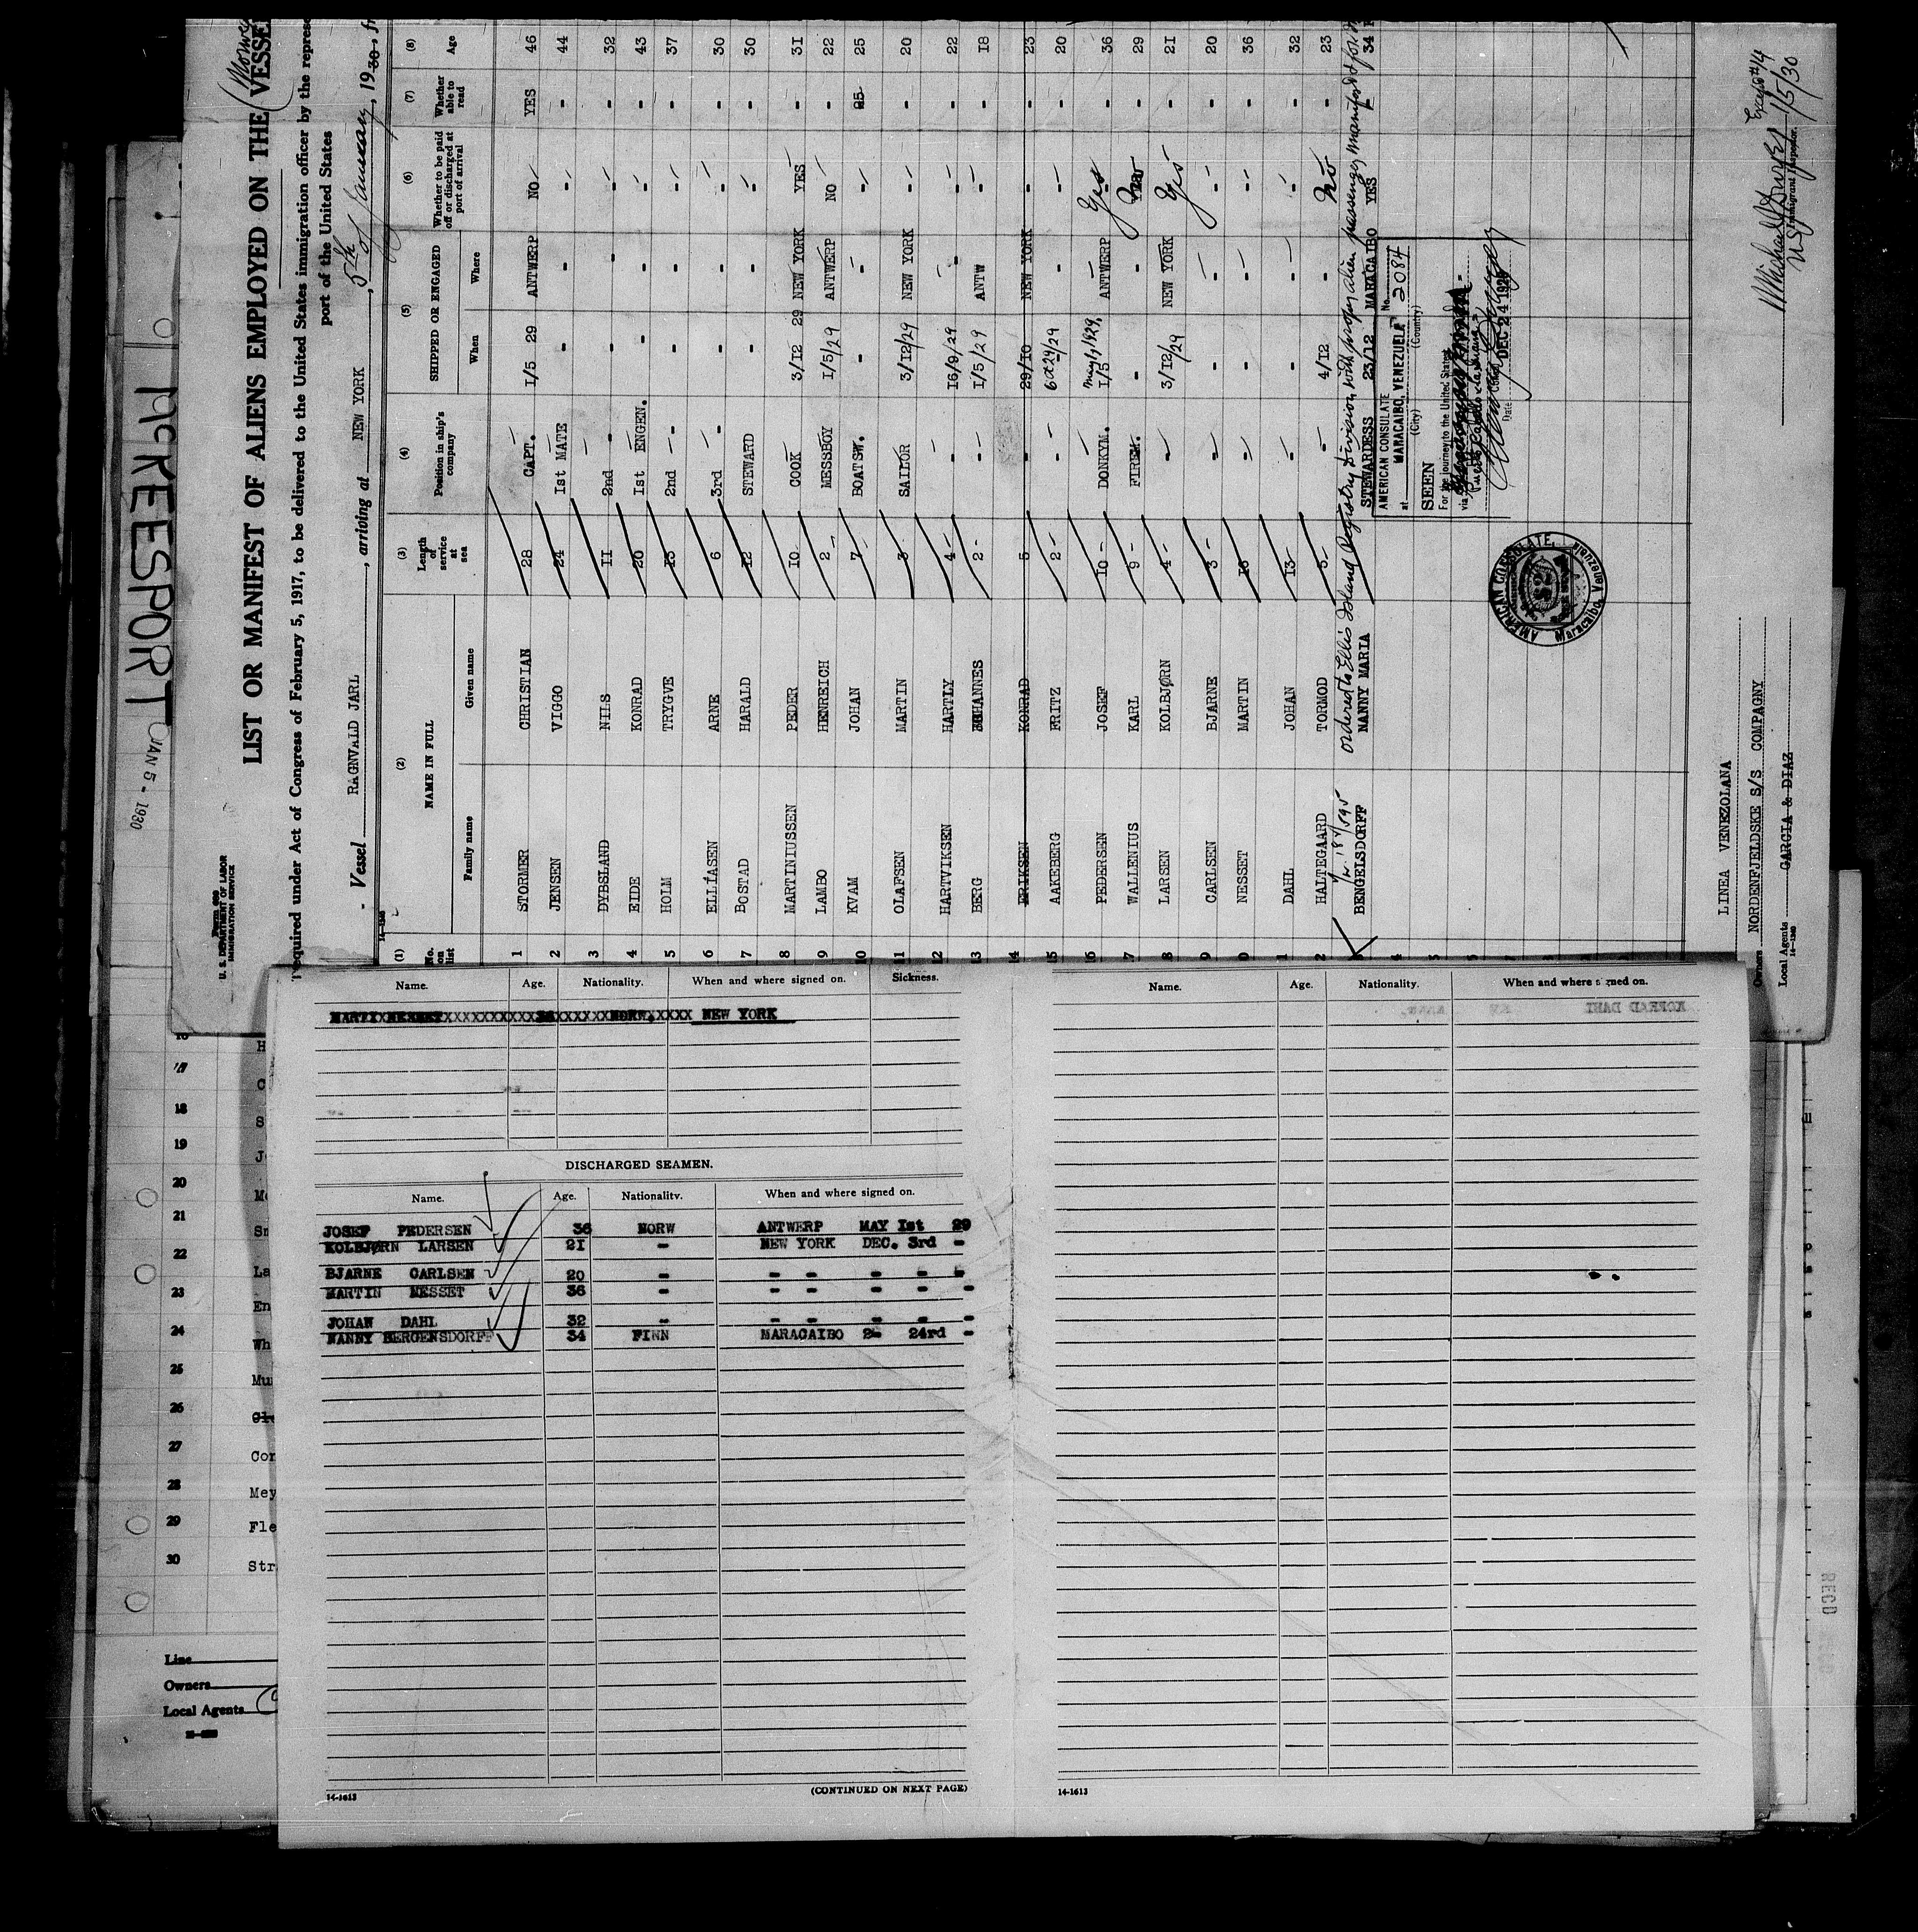 McKEESPORT
JAN 5 - 1930
Form 689
U. S. DEPARTMENT OF LABOR
IMMIGRATION SERVICE
LIST OR MANIFEST OF ALIENS EMPLOYED ON THE VESSE
Required under Act of Congress of February 5, 1917, to be delivered to the United States immigration officer by the repres
port of the United States
Vessel RAGNVALD JARL, arriving at NEW YORK, 5th of January, 1930, fr
(1) (2) (3) (4) (5) (6) (7) (8)
No. on list NAME IN FULL Length of service at sea Position in ship's company SHIPPED OR ENGAGED Whether to be paid off or discharged at port of arrival Whether able to read Age
Family name Given name When Where
1 STORMER CHRISTIAN 28 CAPT. 1/5 29 ANTWERP NO YES 46
2 JENSEN VIGGO 24 1st MATE - - - - 44
3 DYBSLAND NILS 11 2nd - - - - - 32
4 EIDE KONRAD 20 1st ENGEN. - - - - 43
5 HOLM TRYGVE 13 2nd - - - - - 37
6 ELLIASEN ARNE 6 3rd - - - - - 30
7 BOSTAD HARALD 12 STEWARD - - - - 30
8 MARTINIUSSEN PEDER 10 COOK 3/12 29 NEW YORK YES - 31
9 LAMBO HENREICH 2 MESSBOY 1/5/29 ANTWERP NO - 22
10 KVAM JOHAN 7 BOATSW. - - - 25 25
11 OLAFSEN MARTIN 3 SAILOR 3/12/29 NEW YORK - - 20
12 HARTVIKSEN HARTLY 4 - 16/9/29 - - - 22
13 BERG JOHANNES 2 - 1/5/29 ANTW - - 18
14 ERIKSEN KONRAD 5 - 29/10 NEW YORK - - 23
15 AAKEBERG FRITZ 2 - 29 - - - 20
16 PEDERSEN JOSEF 10 DONKYM. May 1, 1929, 1/5 ANTWERP Yes - 36
17 WALLENIUS KARL 9 FIREM. - - No - 29
18 LARSEN KOLBJØRN 4 - 3/12/29 NEW YORK Yes - 21
9 CARLSEN BJARNE 3 - - - - - 20
0 NESSET MARTIN 16 - - - - - 36
1 DAHL JOHAN 13 - - - - - 32
2 HALTEGAARD TORMOD 5 - 4/12 - No - 23
ordered to Ellis Island Registry Division with proper alien passenger manifest for
3 BENGELSDORFF NANNY MARIA STEWARDESS 23/12 MARACAIBO YES 34
AMERICAN CONSULATE No. 2084
at MARACAIBO, VENEZUELA
(City) (Country)
SEEN
For the journey to the United States
via
Date DEC 24 1929
AMERICAN CONSULATE
Maracaibo, Venezuela
LINEA VENEZOLANA
Owners NORDENFJELDSKE S/S COMPAGNY
Local Agents GARCIA & DIAZ
14-1240
Except #14
1/5/30
Immigrant Inspector.
Name. Age. Nationality. When and where signed on. Sickness.
NEW YORK
DISCHARGED SEAMEN.
Name. Age. Nationality. When and where signed on.
JOSEF PEDERSEN 36 NORW ANTWERP MAY 1st 29
KOLBJØRN LARSEN 21 - NEW YORK DEC. 3rd -
BJARNE CARLSEN 20 - - - - - -
MARTIN NESSET 36 - - - - - -
JOHAN DAHL 32 - - - - - -
NANNY BERGENSDORFF 34 FINN MARACAIBO 2- 24rd -
14-1613
(CONTINUED ON NEXT PAGE)
Name. Age. Nationality. When and where signed on.
14-1613
18
19
20
21
22
23
24
25
26
27
28
29
30
La
En
Wh
Mu
Cor
Mey
Fle
Str
Line
Owners
Local Agents
RECD